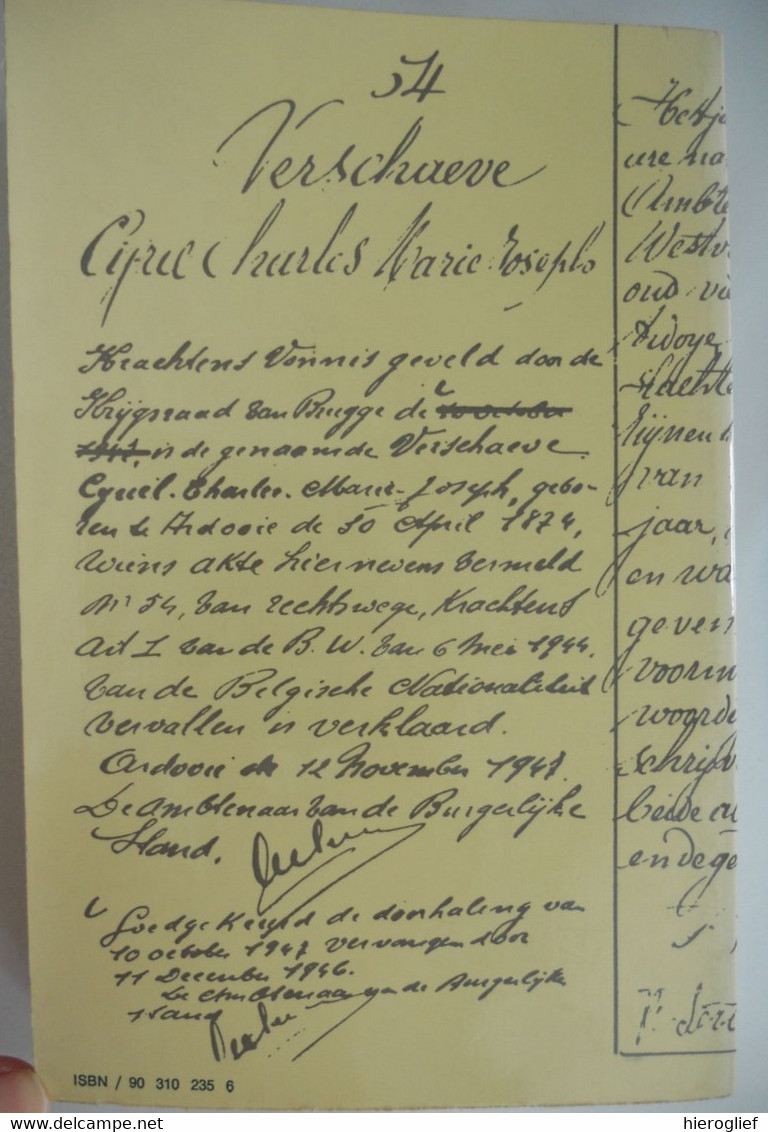 54
Verschaeve
Cyriel Charles Marie Joseph
Krachtens Vonnis geveld door de
Krijgsraad van Brugge de ~~10 october~~
~~1947,~~ is de genaamde Verschaeve
Cyriel-Charles-Marie-Joseph, gebo-
ren te Ardooie de 30 April 1874,
wiens akte hiernevens vermeld
Nr 54, van rechtswege, Krachtens
Art I van de B.W. van 6 Mei 1944,
van de Belgische Nationaliteit
vervallen is verklaard.
Ardooie de 12 November 1947.
De Ambtenaar van de Burgerlijke
Stand,
Goedgekeurd de doorhaling van
10 october 1947 vervangen door
11 December 1946.
De Ambtenaar van de Burgerlijke
Stand
ISBN / 90 310 235 6
Het ja
ure na
Ambte
Westv
oud vi
Twoye
slachte
zijnen
van
jaar,
en wa
geven
voorn
woord
schrijv
beide
en de ge